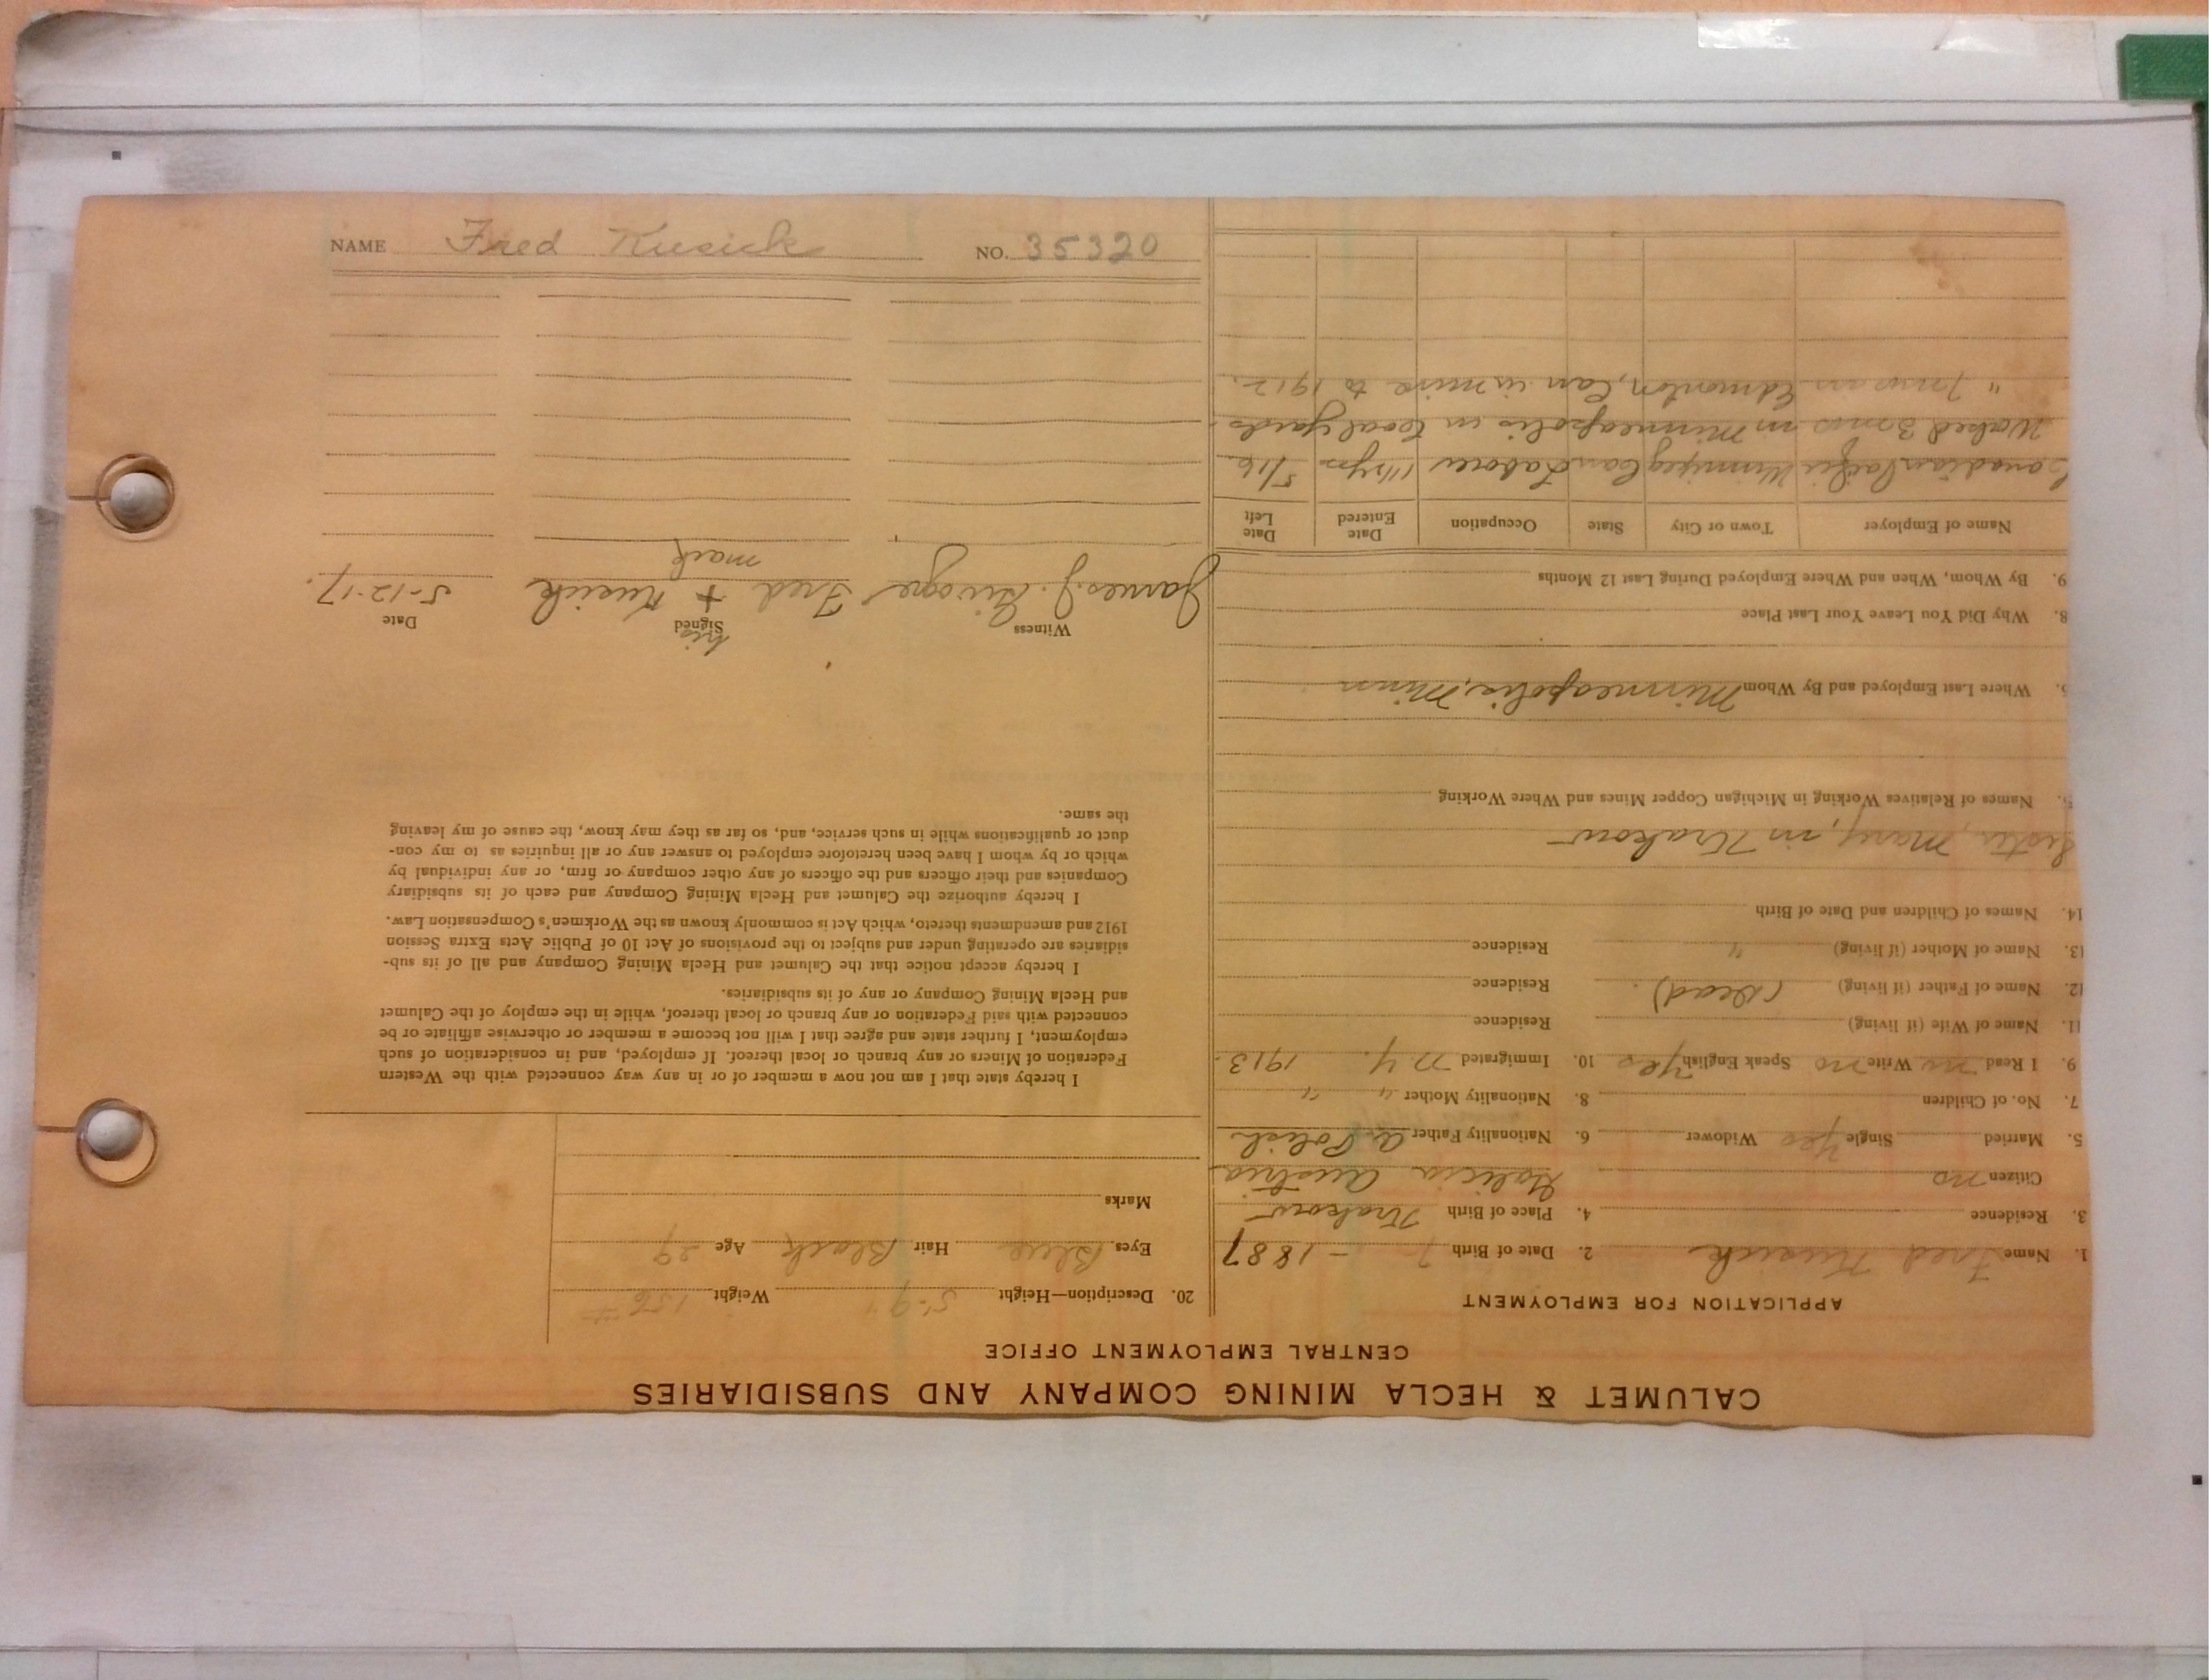 CALUMET & HECLA MINING COMPANY AND SUBSIDIARIES
CENTRAL EMPLOYMENT OFFICE
APPLICATION FOR EMPLOYMENT
1. Name Fred Kusick 2. Date of Birth 7 - 1887
3. Residence 4. Place of Birth Krakow
Citizen no Galicia Austria
5. Married Single Yes Widower 6. Nationality Father a. Polish
7. No. of Children 8. Nationality Mother " "
9. I Read no Write no Speak English Yes 10. Immigrated N.Y. 1913.
11. Name of Wife (if living) Residence
12. Name of Father (if living) (Dead) Residence
13. Name of Mother (if living) " Residence
14. Names of Children and Date of Birth
Sister, Mary, in Krakow
Names of Relatives Working in Michigan Copper Mines and Where Working
Where Last Employed and By Whom Minneapolis, Minn
8. Why Did You Leave Your Last Place
9. By Whom, When and Where Employed During Last 12 Months
Name of Employer Town or City State Occupation Date Entered Date Left
Canadian Pacific Winnipeg Can Labor 5/16
Worked 3 mos in Minneapolis in
" Edmonton, Can in mine to 1912.
20. Description—Height 5'-9" Weight 156
Eyes Blue Hair Black Age 29
Marks
I hereby state that I am not now a member of or in any way connected with the Western
Federation of Miners or any branch or local thereof. If employed, and in consideration of such
employment, I further state and agree that I will not become a member or otherwise affiliate or be
connected with said Federation or any branch or local thereof, while in the employ of the Calumet
and Hecla Mining Company or any of its subsidiaries.
I hereby accept notice that the Calumet and Hecla Mining Company and all of its sub-
sidiaries are operating under and subject to the provisions of Act 10 of Public Acts Extra Session
1912 and amendments thereto, which Act is commonly known as the Workmen's Compensation Law.
I hereby authorize the Calumet and Hecla Mining Company and each of its subsidiary
Companies and their officers and the officers of any other company or firm, or any individual by
which or by whom I have been heretofore employed to answer any or all inquiries as to my con-
duct or qualifications while in such service, and, so far as they may know, the cause of my leaving
the same.
Witness Signed Date
his
James J. Fred + Kusick 5-12-17.
mark
NAME Fred Kusick NO. 35320